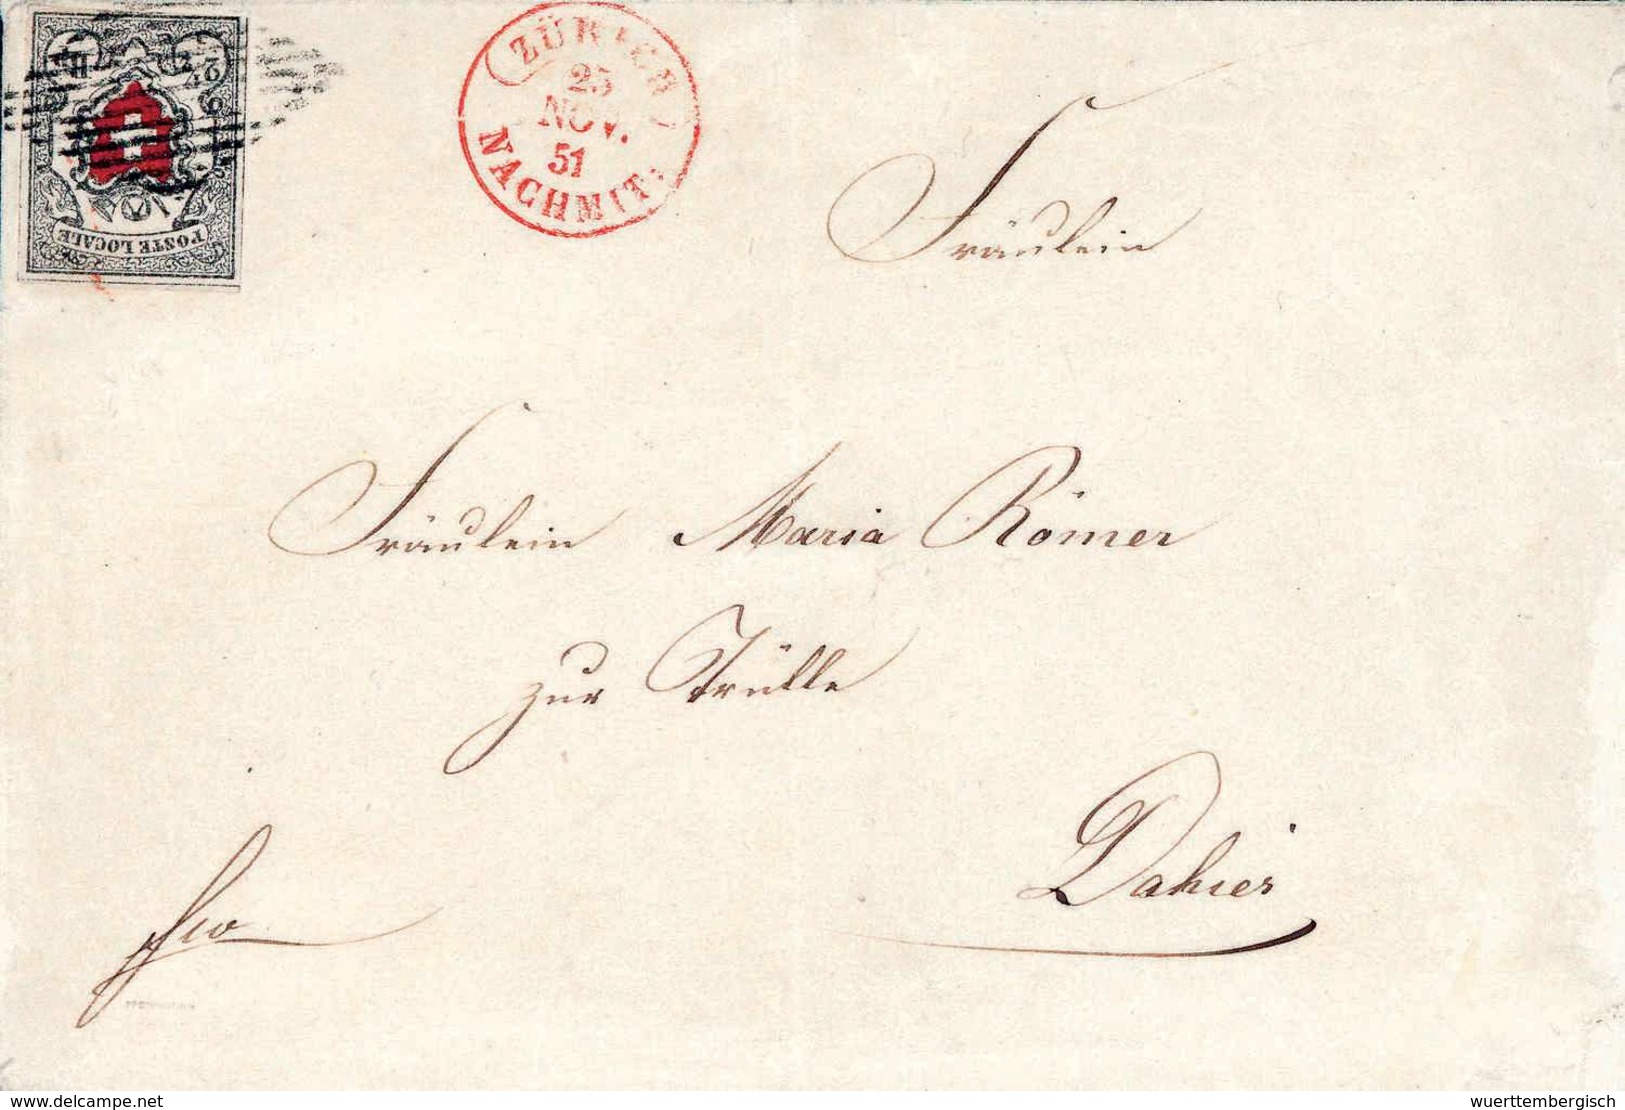 2½
POSTE LOCALE
ZÜRICH
25
NOV.
51
NACHMIT:
Fräulein
Fräulein Maria Römer
zur Trülle
Dahier
fco
www.delcampe.net
wuerttembergisch